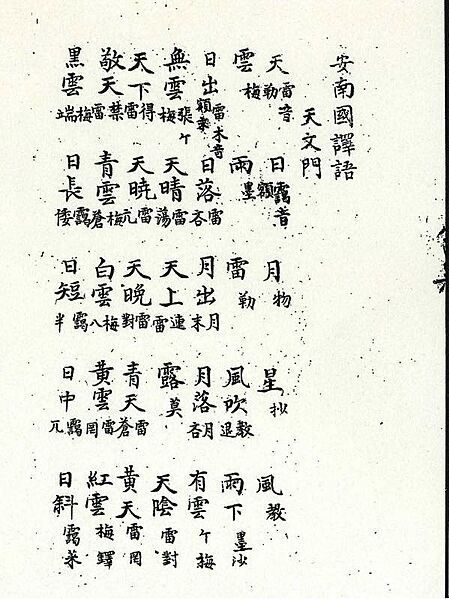 安南國譯語
天文門
天 雷音勒 日 靄音額 月 物 星 抄 風 教
雲 梅 雨 墨 雷 勒 風吹 教退 雨下 墨沙
日出 雷木音額業 日落 雷吝 月出 月末 月落 月吝 有雲 亇梅
無雲 張亇梅 天晴 雷蕩 天上 連雷 露 莫 天陰 雷對
天下 得雷 天曉 雷亢 天晚 雷對 青天 雷蒼 黃天 雷罔
敬天 禁雷 青雲 梅蒼 白雲 梅八 黃雲 雷罔 紅雲 梅鐸
黑雲 梅端 日長 靄倭 日短 靄半 日中 靄兀 日斜 靄釆